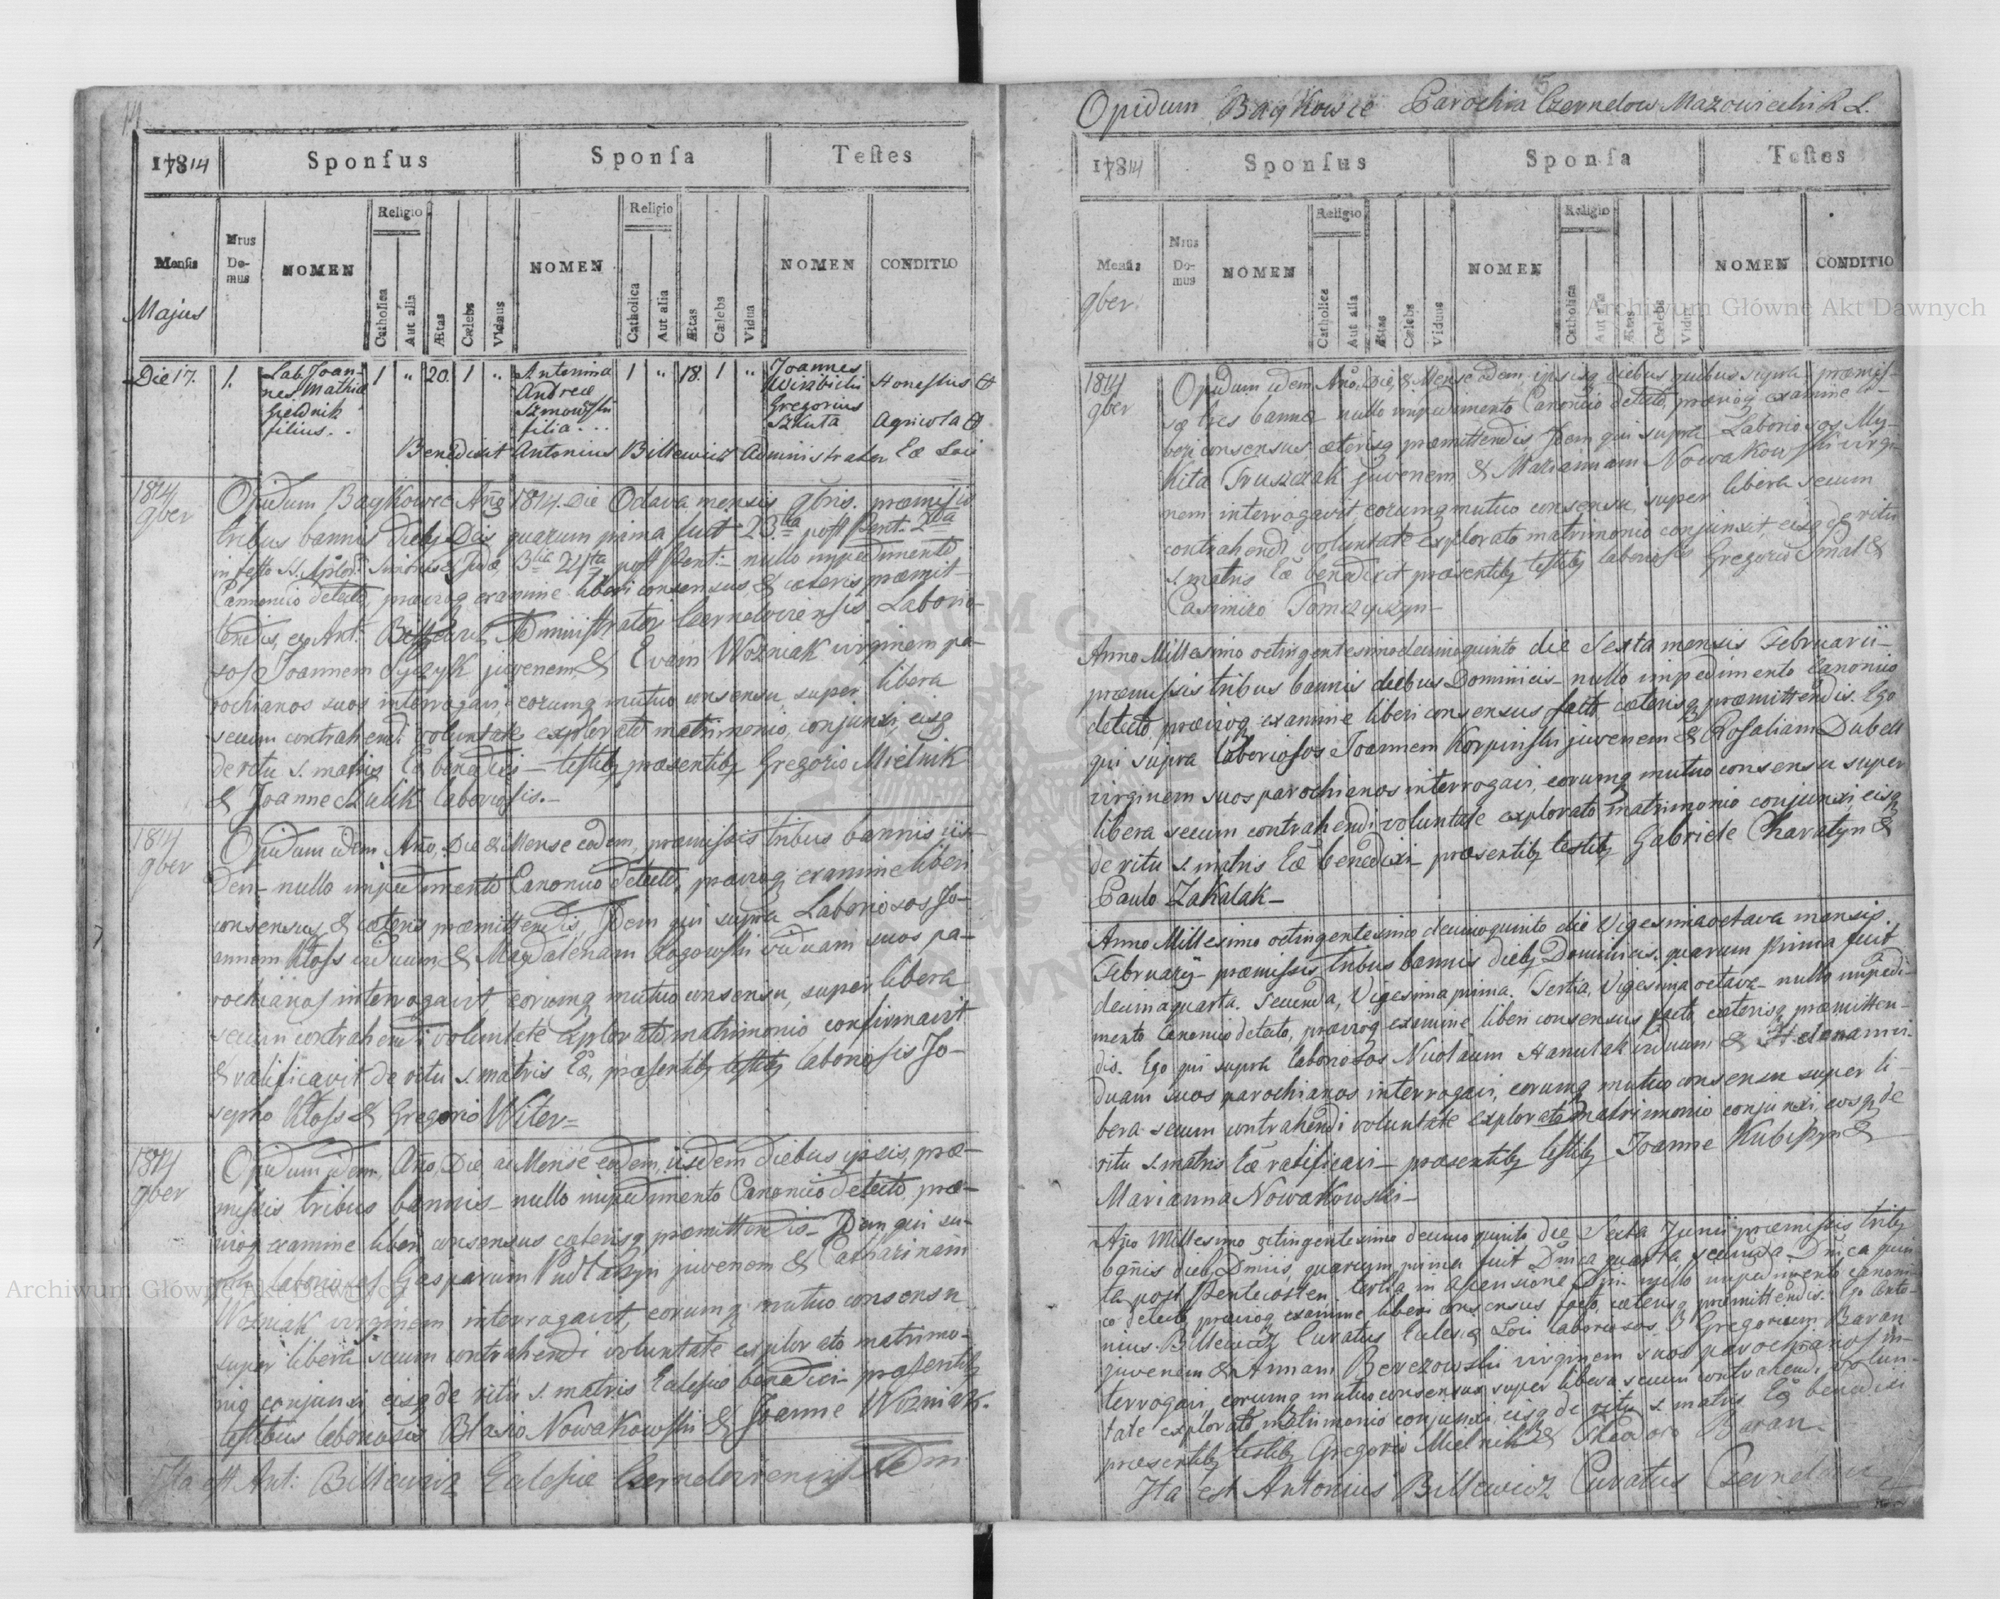 14
17814
Sponsus
Sponsa
Testes
Mensis
Nrus Domus
NOMEN
Religio
Catholica
Aut alia
Ætas
Cælebs
Viduus
NOMEN
Religio
Catholica
Aut alia
Ætas
Cælebs
Vidua
NOMEN
CONDITIO
Majus
Die 17. 1. Lab. Joan- 1 " 20. 1 " Antonina 1 " 18. 1 " Joannes
nes Mathiæ Andreæ Honestus et
filius filia Gregorius
Agricola et
Benedixit Antonius Billewicz Administrator Eæ Loci
1814
9ber
Opidum Baykowce Año 1814. Die Octava mensis 9bris. præmissis
tribus bannis dieb. Dis quarum prima fuit 23tia post Pent. 2da
in festo S. Aplor. Simonis & Judæ, 3tia 24ta post Pent. nullo impedimento
Cannonico detecto, prævioq examine liberi consensus, & cæteris præmit-
tendis, ego Ant. Billewicz Administrator Czerneloviensis Laborio-
sos Joannem juvenem & Evam Wozniak virginem pa-
rochianos suos interrogavi eorumq mutuo consensu super libera
secum contrahendi voluntate explorato matrimonio conjunxi, eisq
de ritu s. matris Eæ benedixi testib præsentib Gregorio Mielnik
& Joanne Kulik laboriosis.
1814
9ber
Opidum idem Año, Die & Mense eodem, præmissis tribus bannis iis-
dem nullo impedimento Canonico detecto, prævioq examine liberi
consensus, & cæteris præmittendis, Idem qui supra Laboriosos Jo-
annem Kloss viduum & Magdalenam Rogowski viduam suos pa-
rochianos interrogavit eorumq mutuo consensu, super libera
secum contrahendi voluntate explorato matrimonio confirmavit
& ratificavit de ritu s. matris Eæ, præsentib testib laboriosis Jo-
sepho Kloss & Gregorio Witer
1814
9ber
Opidum idem, Año, Die ac Mense eodem, iisdem diebus ipsis, præ-
missis tribus bannis nullo impedimento Canonico detecto, præ-
vioq examine liberi consensus cæterisq præmittendis Idem qui su-
pra laboriosos Gasparum juvenem & Catharinam
Wozniak virginem interrogavit, eorumq mutuo consensu
super libera secum contrahendi voluntate explorato matrimo-
nio conjunxi eisq de ritu s. matris Eclesiæ benedixi præsentib
testibus laboriosis Blasio Nowakowski & Joanne Wozniak.
Ita est Ant: Billewicz Eclesiæ Czerneloviensis Adm
Opidum Baykowce Parochia Czernelow Mazowiecki R. L.
17814
Sponsus
Sponsa
Testes
Mensis
Nrus Domus
NOMEN
Religio
Catholica
Aut alia
Ætas
Cælebs
Viduus
NOMEN
Religio
Catholica
Aut alia
Ætas
Cælebs
Vidua
NOMEN
CONDITIO
9ber
1814
9ber
Opidum idem Año, Die, & Mense eodem, ipsisq diebus quibus supra, præmis-
sæ tres bannæ nullo impedimento Canonico detecto, prævioq examine li-
beri consensus cæterisq præmittendis Idem qui supra Laboriosos My-
kita Truszczak juvenem & Mariannam Nowakowski virgi-
nem interrogavit eorumq mutuo consensu, super libera secum
contrahendi voluntate explorato matrimonio conjunxit, eisq de ritu
s. matris Eæ benedixit præsentib testib laboriosis Gregorio Smal &
Casimiro Tomczyszyn
Anno Millesimo octingentesimo decimo quinto die Sexta mensis Februarii
præmissis tribus bannis diebus Dominicis nullo impedimento Canonico
detecto prævioq examine liberi consensus facto cæterisq præmittendis. Ego
qui supra laboriosos Joannem Korpinski juvenem & Rosaliam Dubell
virginem suos parochianos interrogavi, eorumq mutuo consensu super
libera secum contrahendi voluntate explorato matrimonio conjunxi, eisq
de ritu s. matris Eæ benedixi præsentib testib Gabriele Charatyn &
Paulo Zakalak
Anno Millesimo octingentesimo decimo quinto die Vigesima octava mensis
Februarij præmissis tribus bannis dieb Dominicis quarum prima fuit
decima quarta. Secunda, Vigesima prima. Tertia, Vigesima octava nullo impedi-
mento Canonico detecto, prævioq examine liberi consensus facto cæterisq præmitten-
dis. Ego qui supra laboriosos Nicolaum Hanulak viduum & Helenam vi-
duam suos parochianos interrogavi, eorumq mutuo consensu super li-
bera secum contrahendi voluntate explorato matrimonio conjunxi, eosq de
ritu s. matris Eæ ratificavi præsentib testib Joanne Kubiszyn &
Marianna Nowakowski
Año Millesimo octingentesimo decimo quinto die Sexta Junii præmissis trib
bannis dieb Dnicis, quarum prima fuit Dnica quarta secunda Dnica quin-
ta post Pentecosten, tertia in Ascensione Dni nullo impedimento canoni-
co detecto, prævioq examine liberi consensus facto, cæterisq præmittendis. Ego Anto-
nius Billewicz Curatus Eclesiæ Loci laboriosos Gregorium Baran
juvenem & Annam Berezowski virginem suos parochianos in-
terrogavi, eorumq mutuo consensus super libera secum contrahendi volun-
tate explorato matrimonio conjunxi, eisq de ritu s. matris Eæ benedixi
præsentib testib Gregorio Mielnik & Theodoro Baran.
Ita est Antonius Billewicz Curatus
Archiwum Główne Akt Dawnych
Archiwum Główne Akt Dawnych